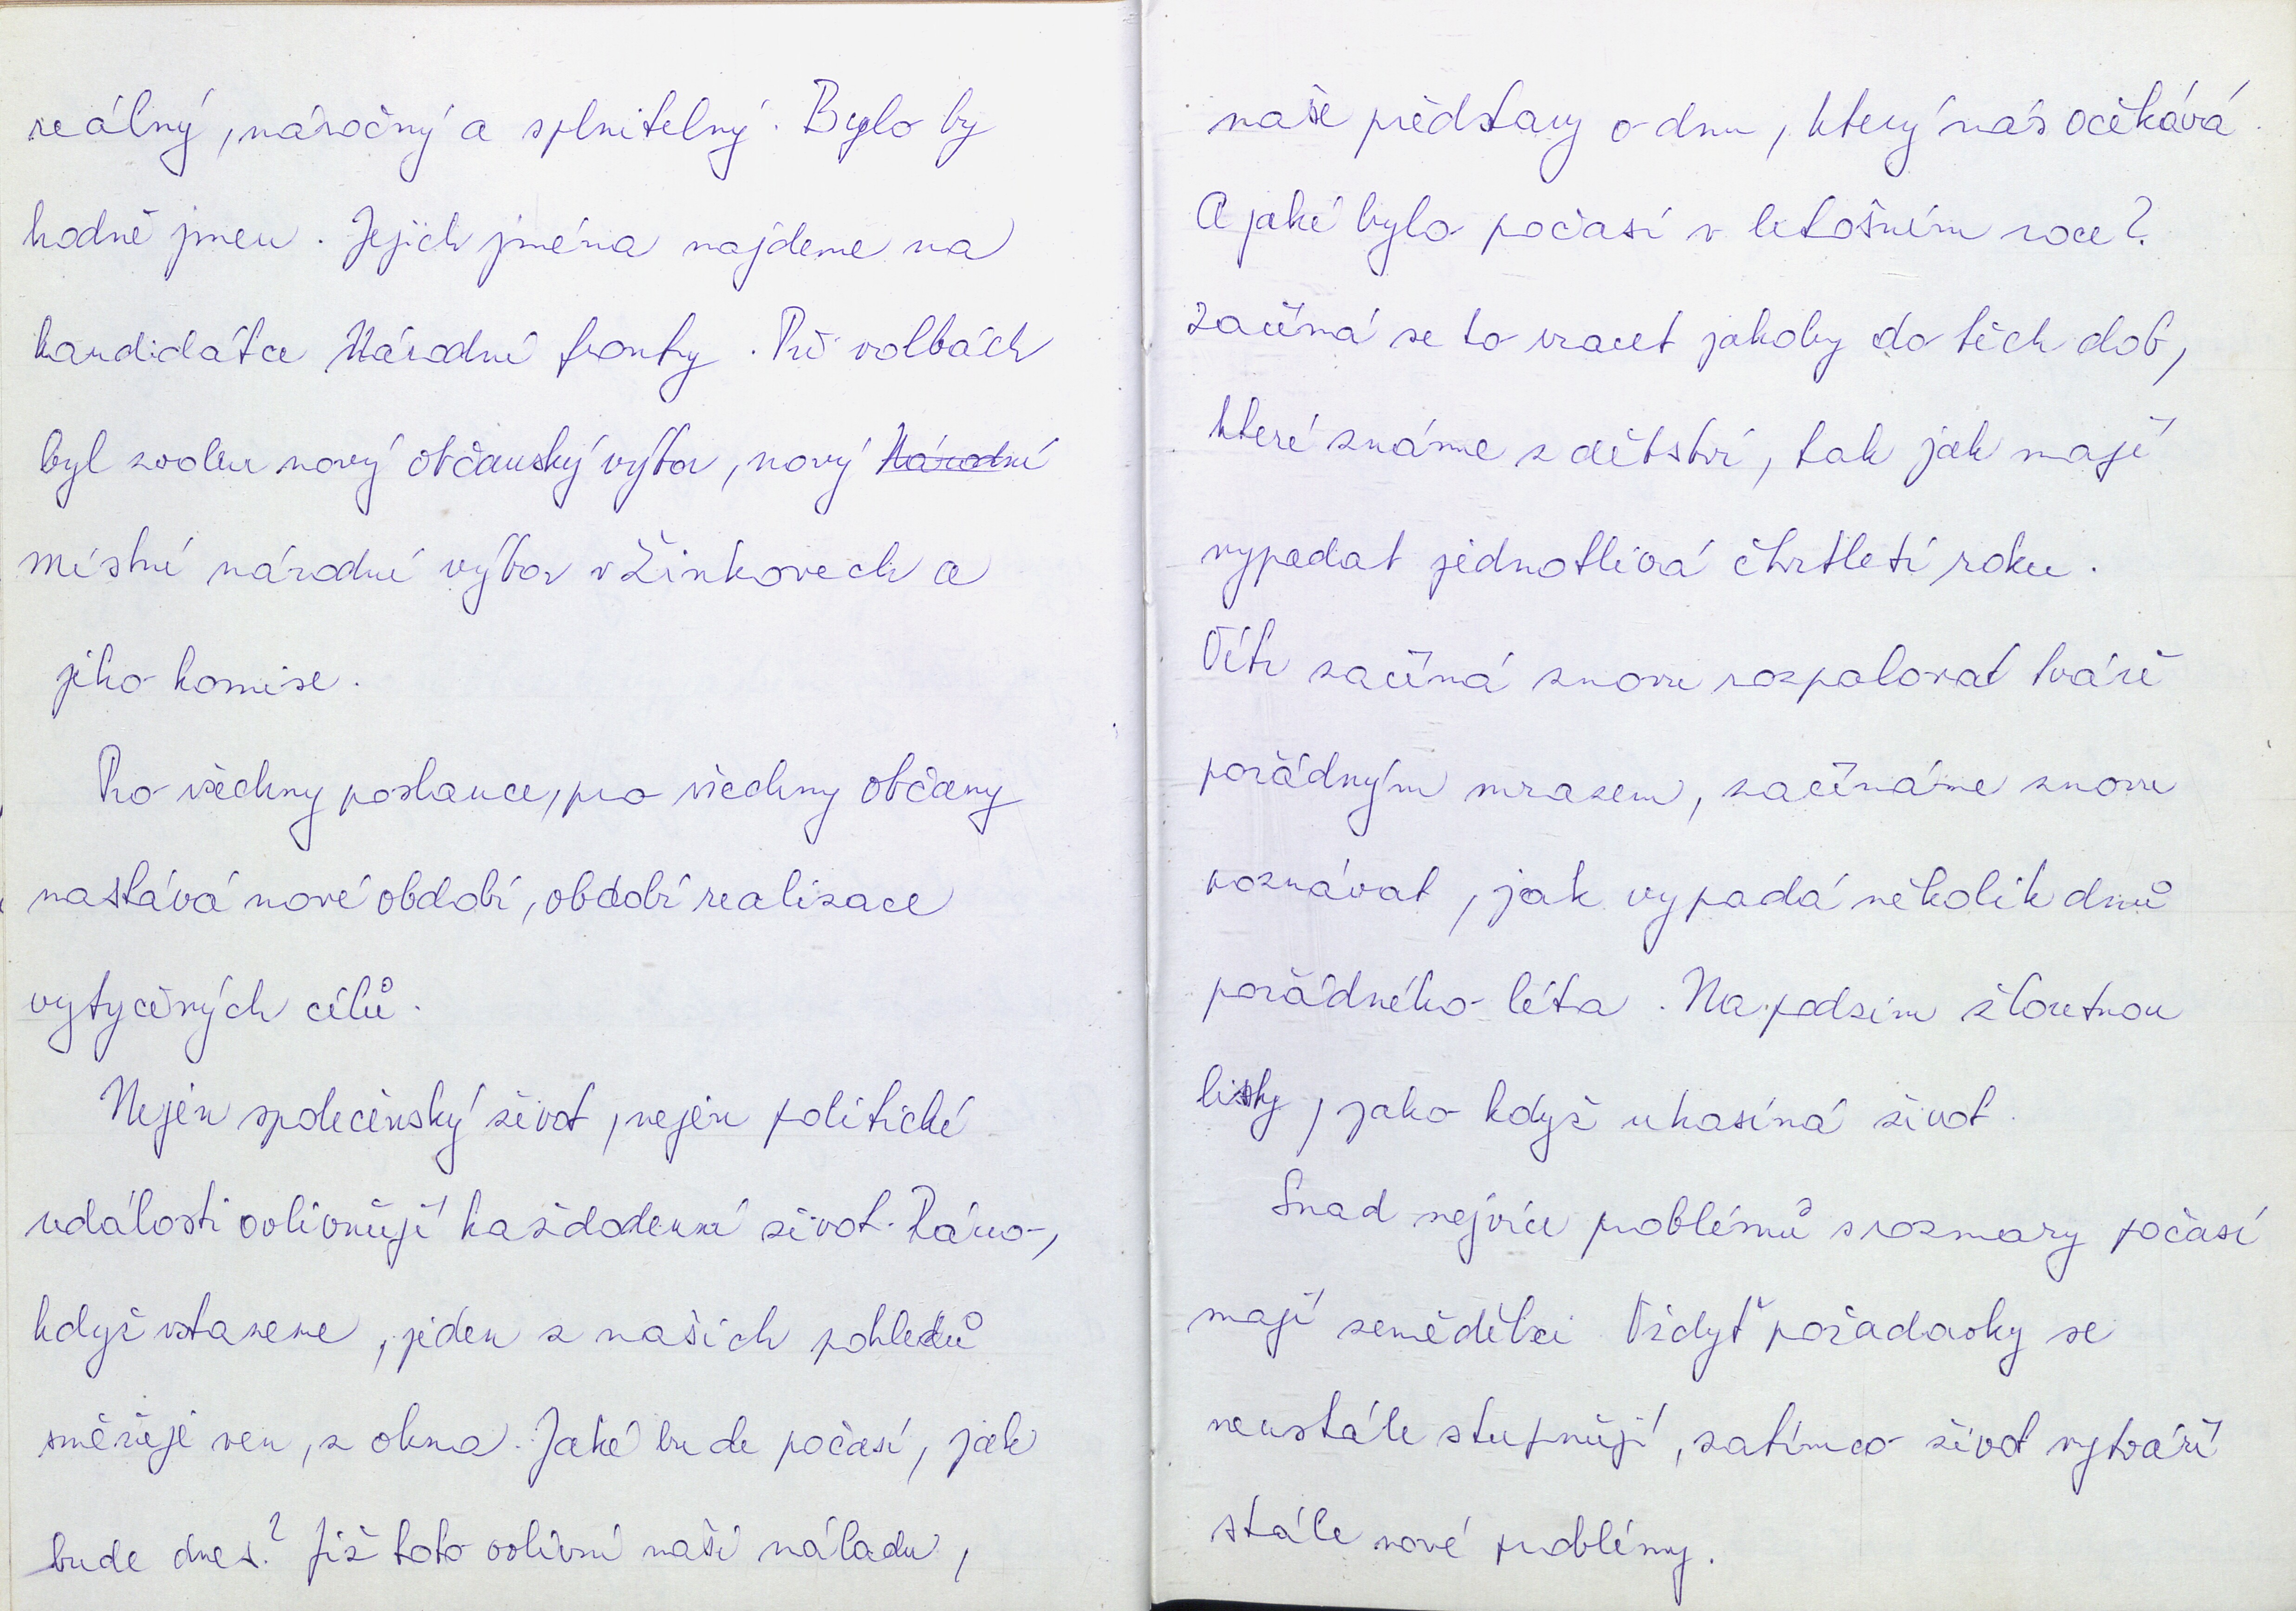 reálný, náročný a splnitelný. Bylo by
hodně jmen. Jejich jména najdeme na
kandidátce Národní fronty. Při volbách
byl zvolen nový občanský výbor, nový Národní
místní národní výbor v Žinkovech a
jeho komise.
Pro všechny poslance, pro všechny občany
nastává nové období, období realizace
vytyčených cílů.
Nejen společenský život, nejen politické
události ovlivňují každodenní život. Ráno,
když vstaneme, jeden z našich pohledů
směřuje ven, z okna. Jaké bude počasí, jak
bude dnes? Již toto ovlivní naši náladu,
naše představy o dnu, který nás očekává.
A jaké bylo počasí v letošním roce?
Začíná se to vracet jakoby do těch dob,
které známe z dětství, tak jak mají
vypadat jednotlivá čtvrtletí roku.
Vítr začíná znovu rozpalovat tváře
pořádným mrazem, začínáme znovu
poznávat, jak vypadá několik dnů
pořádného léta. Na podzim žloutnou
listy, jako když uhasíná život.
Snad nejvíce problémů s rozmary počasí
mají zemědělci Vždyť požadavky se
neustále stupňují, zatímco život vytváří
stále nové problémy.